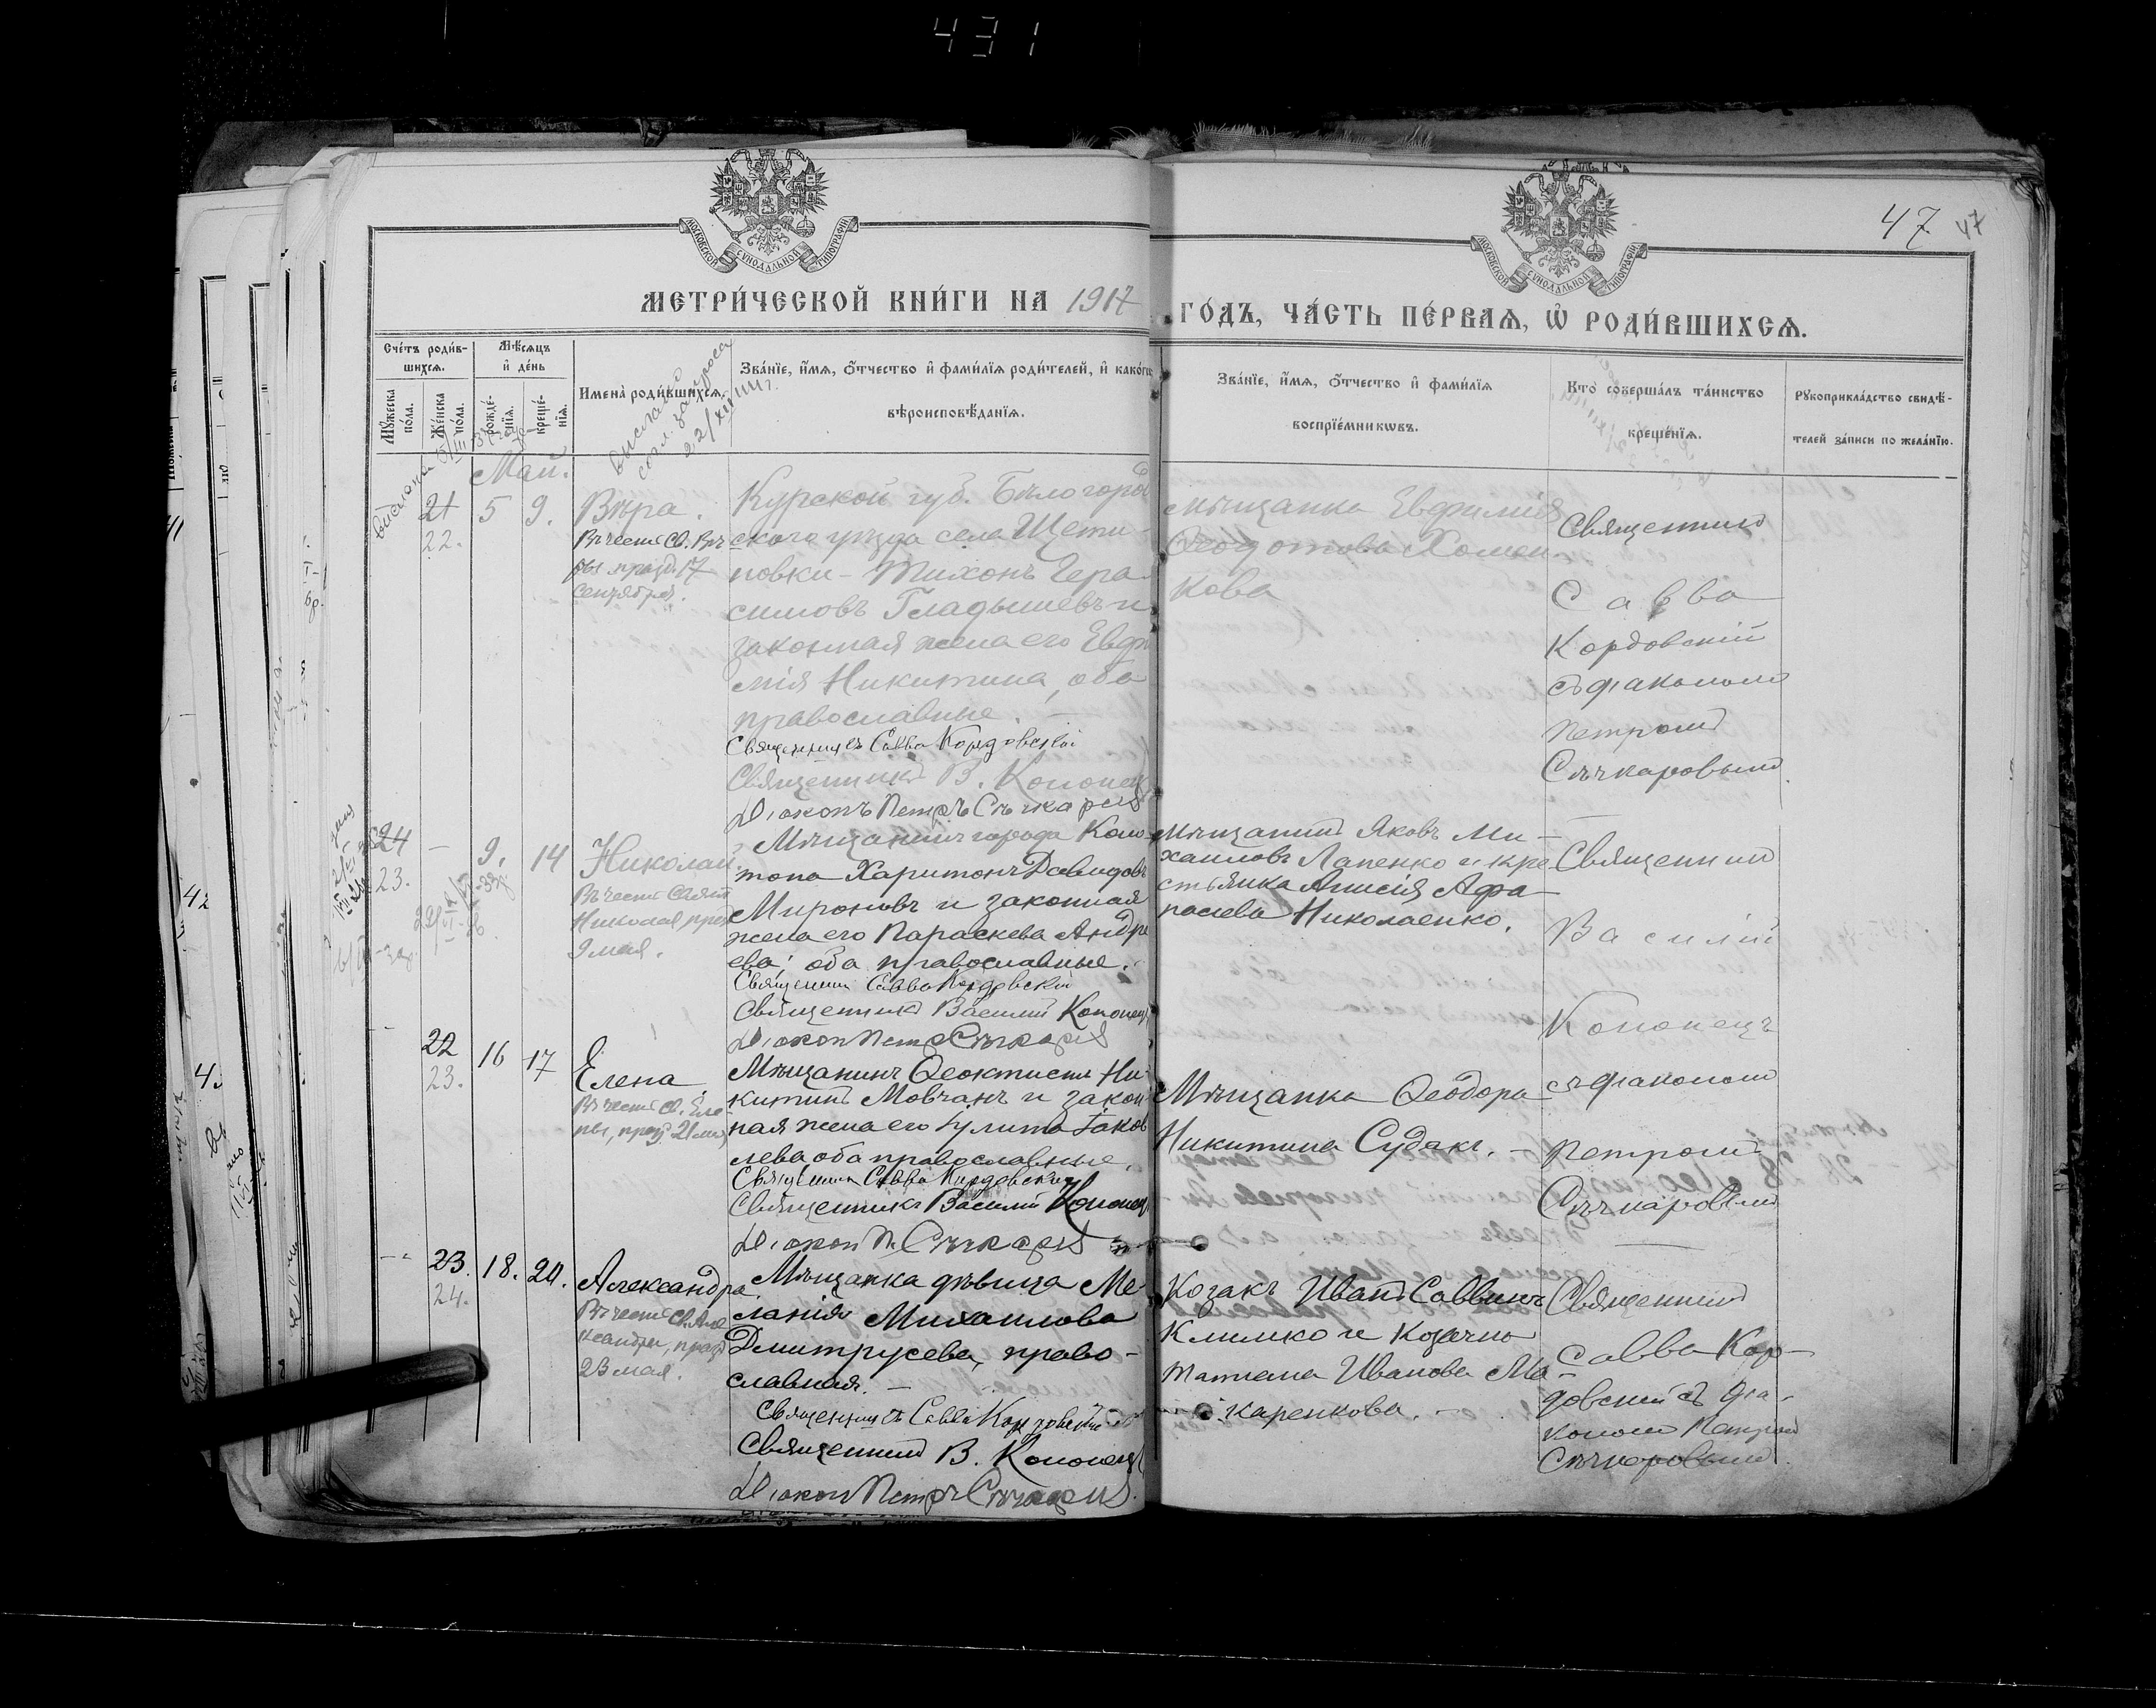 431
МОСКОВСКОЙ СѴНОДАЛЬНОЙ ТИПОГРАФІИ
МОСКОВСКОЙ СѴНОДАЛЬНОЙ ТИПОГРАФІИ
47 47
МЕТРИ́ЧЕСКОЙ КНИ́ГИ НА 1917
ГО́ДЪ, ЧА́СТЬ ПЕ́РВАѦ, Ѡ҆ РОДИ́ВШИХСѦ.
Сче́тъ роди́в-
шихсѧ.
Мꙋ́жеска по́ла.
Же́нска по́ла.
Мѣ́сѧцъ
и҆ де́нь
рожде́-
нїѧ.
креще́-
нїѧ.
Имена̀ роди́вшихсѧ.
Зва́нїе, и҆́мѧ, ѻ҆́тчество и҆ фами́лїѧ роди́телей, и҆ како́гѡ
вѣроисповѣ́данїѧ.
Зва́нїе, и҆́мѧ, ѻ҆́тчество и҆ фами́лїѧ
воспрїе́мникѡвъ.
Кто̀ соверша́лъ та́инство
креще́нїѧ.
Рꙋкоприкла́дство свидѣ́-
телей за́писи по жела́нїю.
Май.
21 5 9.
22.
Вѣра.
Въ честь Св. Вѣ-
ры празд. 17
Сентября.
Курской губ. Бѣлогород
скаго уѣзда села Щети-
новки - Тихонъ Гера-
симовъ Гладышевъ и
законная жена его Евфи
мія Никитина, оба
православные.
Священникъ Савва Кордовскій
Священникъ В. Кононец
Діаконъ Петръ Сѣчкарев
Мѣщанка Евфимія
Ѳеодотова Хомен-
кова
Священникъ
Савва
Кордовскій
съ діакономъ
Петромъ
Сѣчкаровымъ
24 — 9. 14
23.
Николай.
Въ честь Свят
Николая праз
9 мая.
Мѣщанинъ города Коно
топа Харитонъ Давидовъ
Мироновъ и законная
жена его Параскева Андре
ева; оба православные.
Священник Савва Кордовскій
Священникъ Василій Кононец
Діакон Петр Сѣчкарев
Мѣщанинъ Яковъ Ми-
хаиловъ Лапенко и кре
стьянка Анисія Афа-
насіева Николаенко.
Священникъ
Василій
Кононецъ
съ діакономъ
Петромъ
Сѣчкаровымъ
22 16 17
23.
Елена
Въ честь Св. Еле-
ны, праз. 21 мая
Мѣщанинъ Ѳеоктистъ Ни-
китинъ Мовчанъ и закон
ная жена его Іулита Іаков
лева оба православные.
Священник Савва Кордовскій
Священникъ Василій Кононец
Діакон П. Сѣчкарев
Мѣщанка Ѳеодора
Никитина Судакъ. -
23. 18. 20.
24.
Александра.
Въ честь Св. Але
ксандры, празд
23 мая.
Мѣщанка дѣвица Ме-
ланія Михаилова
Дмитрусева, право-
славная. -
Священникъ Савва Кордовскій
Священникъ В. Кононец
Діакон Петръ Сѣчкарев
Козакъ Иванъ Саввинъ
Климко и Козачка
Татіана Иванова Ма-
каренкова. -
Священникъ
Савва Кор-
довскій съ діа-
кономъ Петромъ
Сѣчкаровымъ.